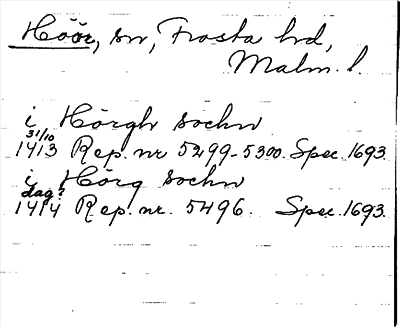 Höör, sn, Frosta hd,
Malm. l.
i Hörgh sochn
31/10
1413 Rep. nr 5299-5300. Spec. 1693
i Hörg sochn
dag?
1414 Rep. nr. 5496. Spec. 1693.